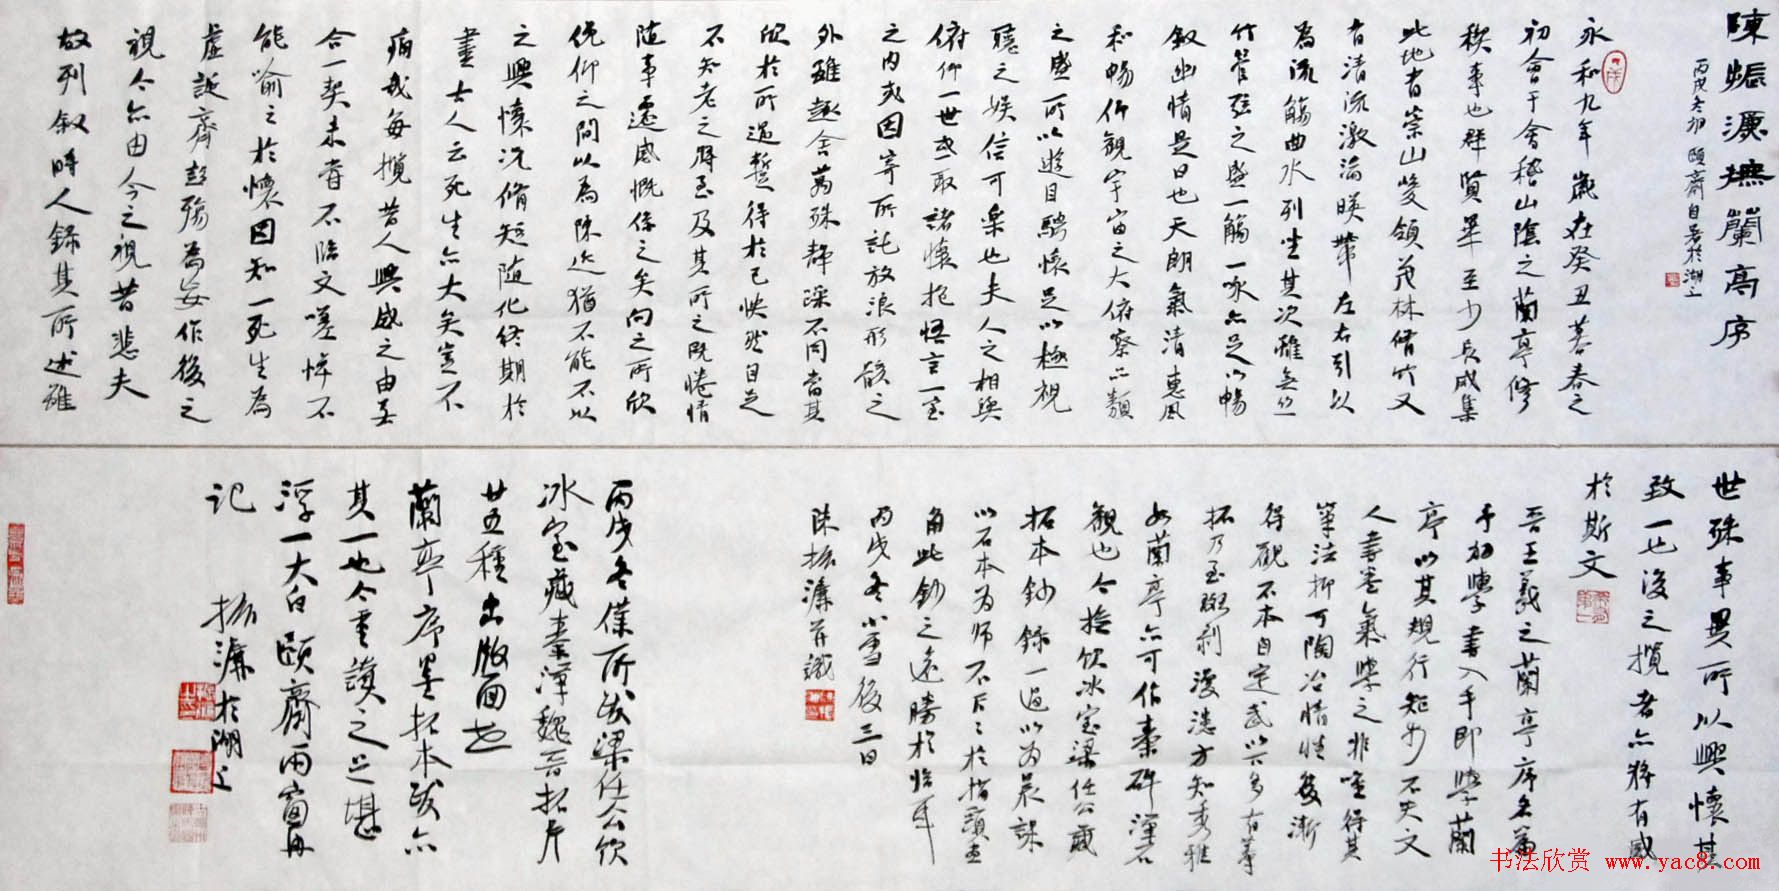 陳振濂撫蘭亭序
丙戌冬初頤齋自署於湖上
永和九年歲在癸丑暮春之
初會于會稽山陰之蘭亭修
禊事也群賢畢至少長咸集
此地有崇山峻領茂林脩竹又
有清流激湍暎帶左右引以
為流觴曲水列坐其次雖無絲
竹管弦之盛一觴一詠亦足以暢
敘幽情是日也天朗氣清惠風
和暢仰觀宇宙之大俯察品類
之盛所以遊目騁懷足以極視
聽之娛信可樂也夫人之相與
俯仰一世或取諸懷抱悟言一室
之內或因寄所託放浪形骸之
外雖趣舍萬殊靜躁不同當其
欣於所遇蹔得於己怏然自足
不知老之將至及其所之既惓情
隨事遷感慨係之矣向之所欣
俛仰之間以為陳迹猶不能不以
之興懷況脩短隨化終期於
盡古人云死生亦大矣豈不
痛哉每攬昔人興感之由若
合一契未嘗不臨文嗟悼不
能喻之於懷固知一死生為
虛誕齊彭殤為妄作後之
視今亦由今之視昔悲夫
故列敘時人錄其所述雖
世殊事異所以興懷其
致一也後之攬者亦將有感
於斯文
晉王羲之蘭亭序名篇
予初學書入手即學蘭
亭以其規行矩步不失文
人書卷氣學之非唯得其
筆法抑可陶冶情性後漸
得覩不本自定武以多有摹
拓乃至斑剝漫漶方知秀雅
如蘭亭亦可佔秦碑漢石
觀也今撿飲冰室梁任公藏
拓本鈔錄一過以為晨課
以石本為師不斤斤於指
角此鈔之遠勝於臨耳
丙戌冬小雪後三日
陳振濂并識
丙戌冬僕所跋梁任公飲
冰室藏秦漢魏晉拓片
廿五種出版面世
蘭亭序墨拓本跋亦
其一也今重讀之足堪
浮一大白頤齋雨窗再
記
振濂於湖上
书法欣赏 www.yac8.com